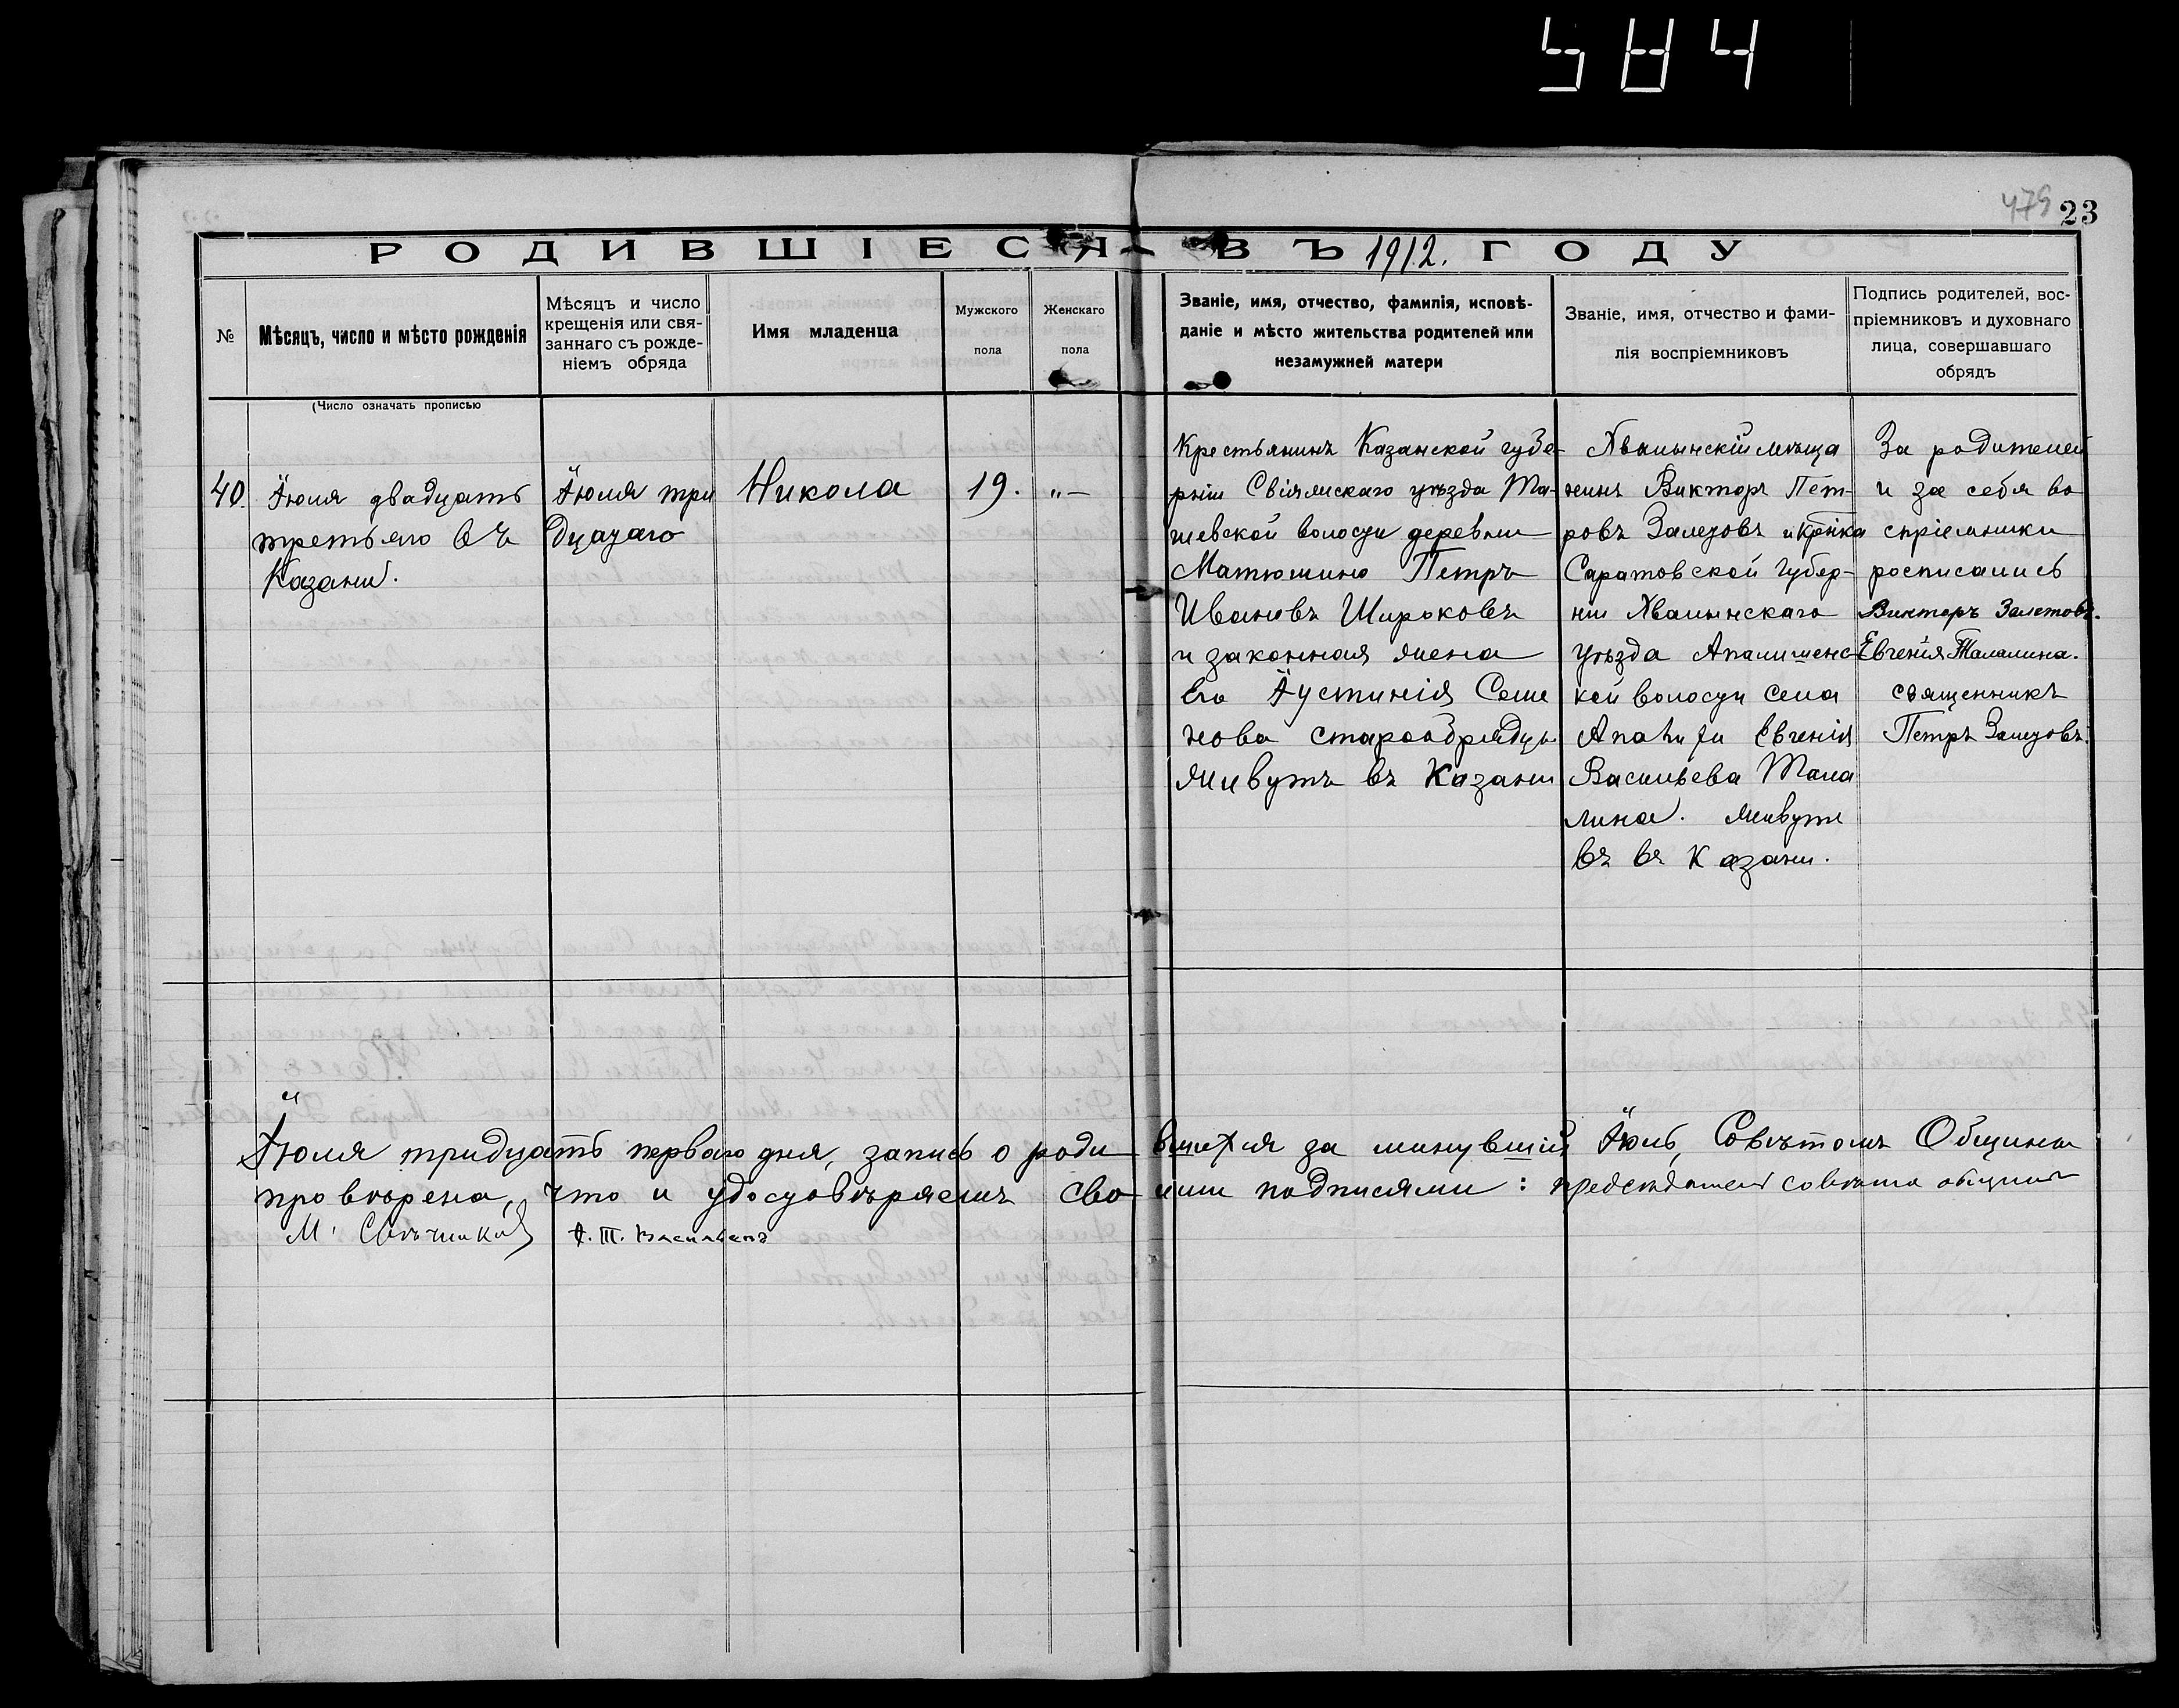 584
479
23
РОДИВШІЕСЯ ВЪ 1912. ГОДУ
№
Мѣсяцъ, число и мѣсто рожденія
Мѣсяцъ и число
крещенія или свя-
заннаго съ рожде-
ніемъ обряда
Имя младенца
Мужского
пола
Женскаго
пола
Званіе, имя, отчество, фамилія, исповѣ-
даніе и мѣсто жительства родителей или
незамужней матери
Званіе, имя, отчество и фами-
лія воспріемниковъ
Подпись родителей, вос-
пріемниковъ и духовнаго
лица, совершавшаго
обрядъ
(Число означать прописью
40.
Іюля двадцать
третьяго въ
Казани.
Іюля три
дцатаго
Никола
19.
"–
Крестьянинъ Казанской губе-
рніи Свіяжскаго уѣзда Та-
шевской волости деревни
Матюшино Петръ
Ивановъ Широковъ
и законная жена
его Іустинія Семе
нова старообрядцы
живутъ въ Казани
Хвалынскій мѣща
нинъ Викторъ Пет-
ровъ Залетовъ и Кр-нка
Саратовской Губер-
ніи Хвалынскаго
уѣзда Апалишенс-
кой волости села
Апалихи Евгенія
Васильева Тала
лина. живутъ
въ въ Казани.
За родителей
и за себя во
спріемники
росписались
Викторъ Залетовъ.
Евгенія Талалина.
священникъ
Петръ Залетовъ.
Іюля тридцать перваго дня, запись о роди вшихся за минувшій Іюль, Совѣтомъ Общины
провѣрена, что и удостовѣряемъ сво ими подписями: председатель совѣта общины
М.
А. Т. Васильевъ